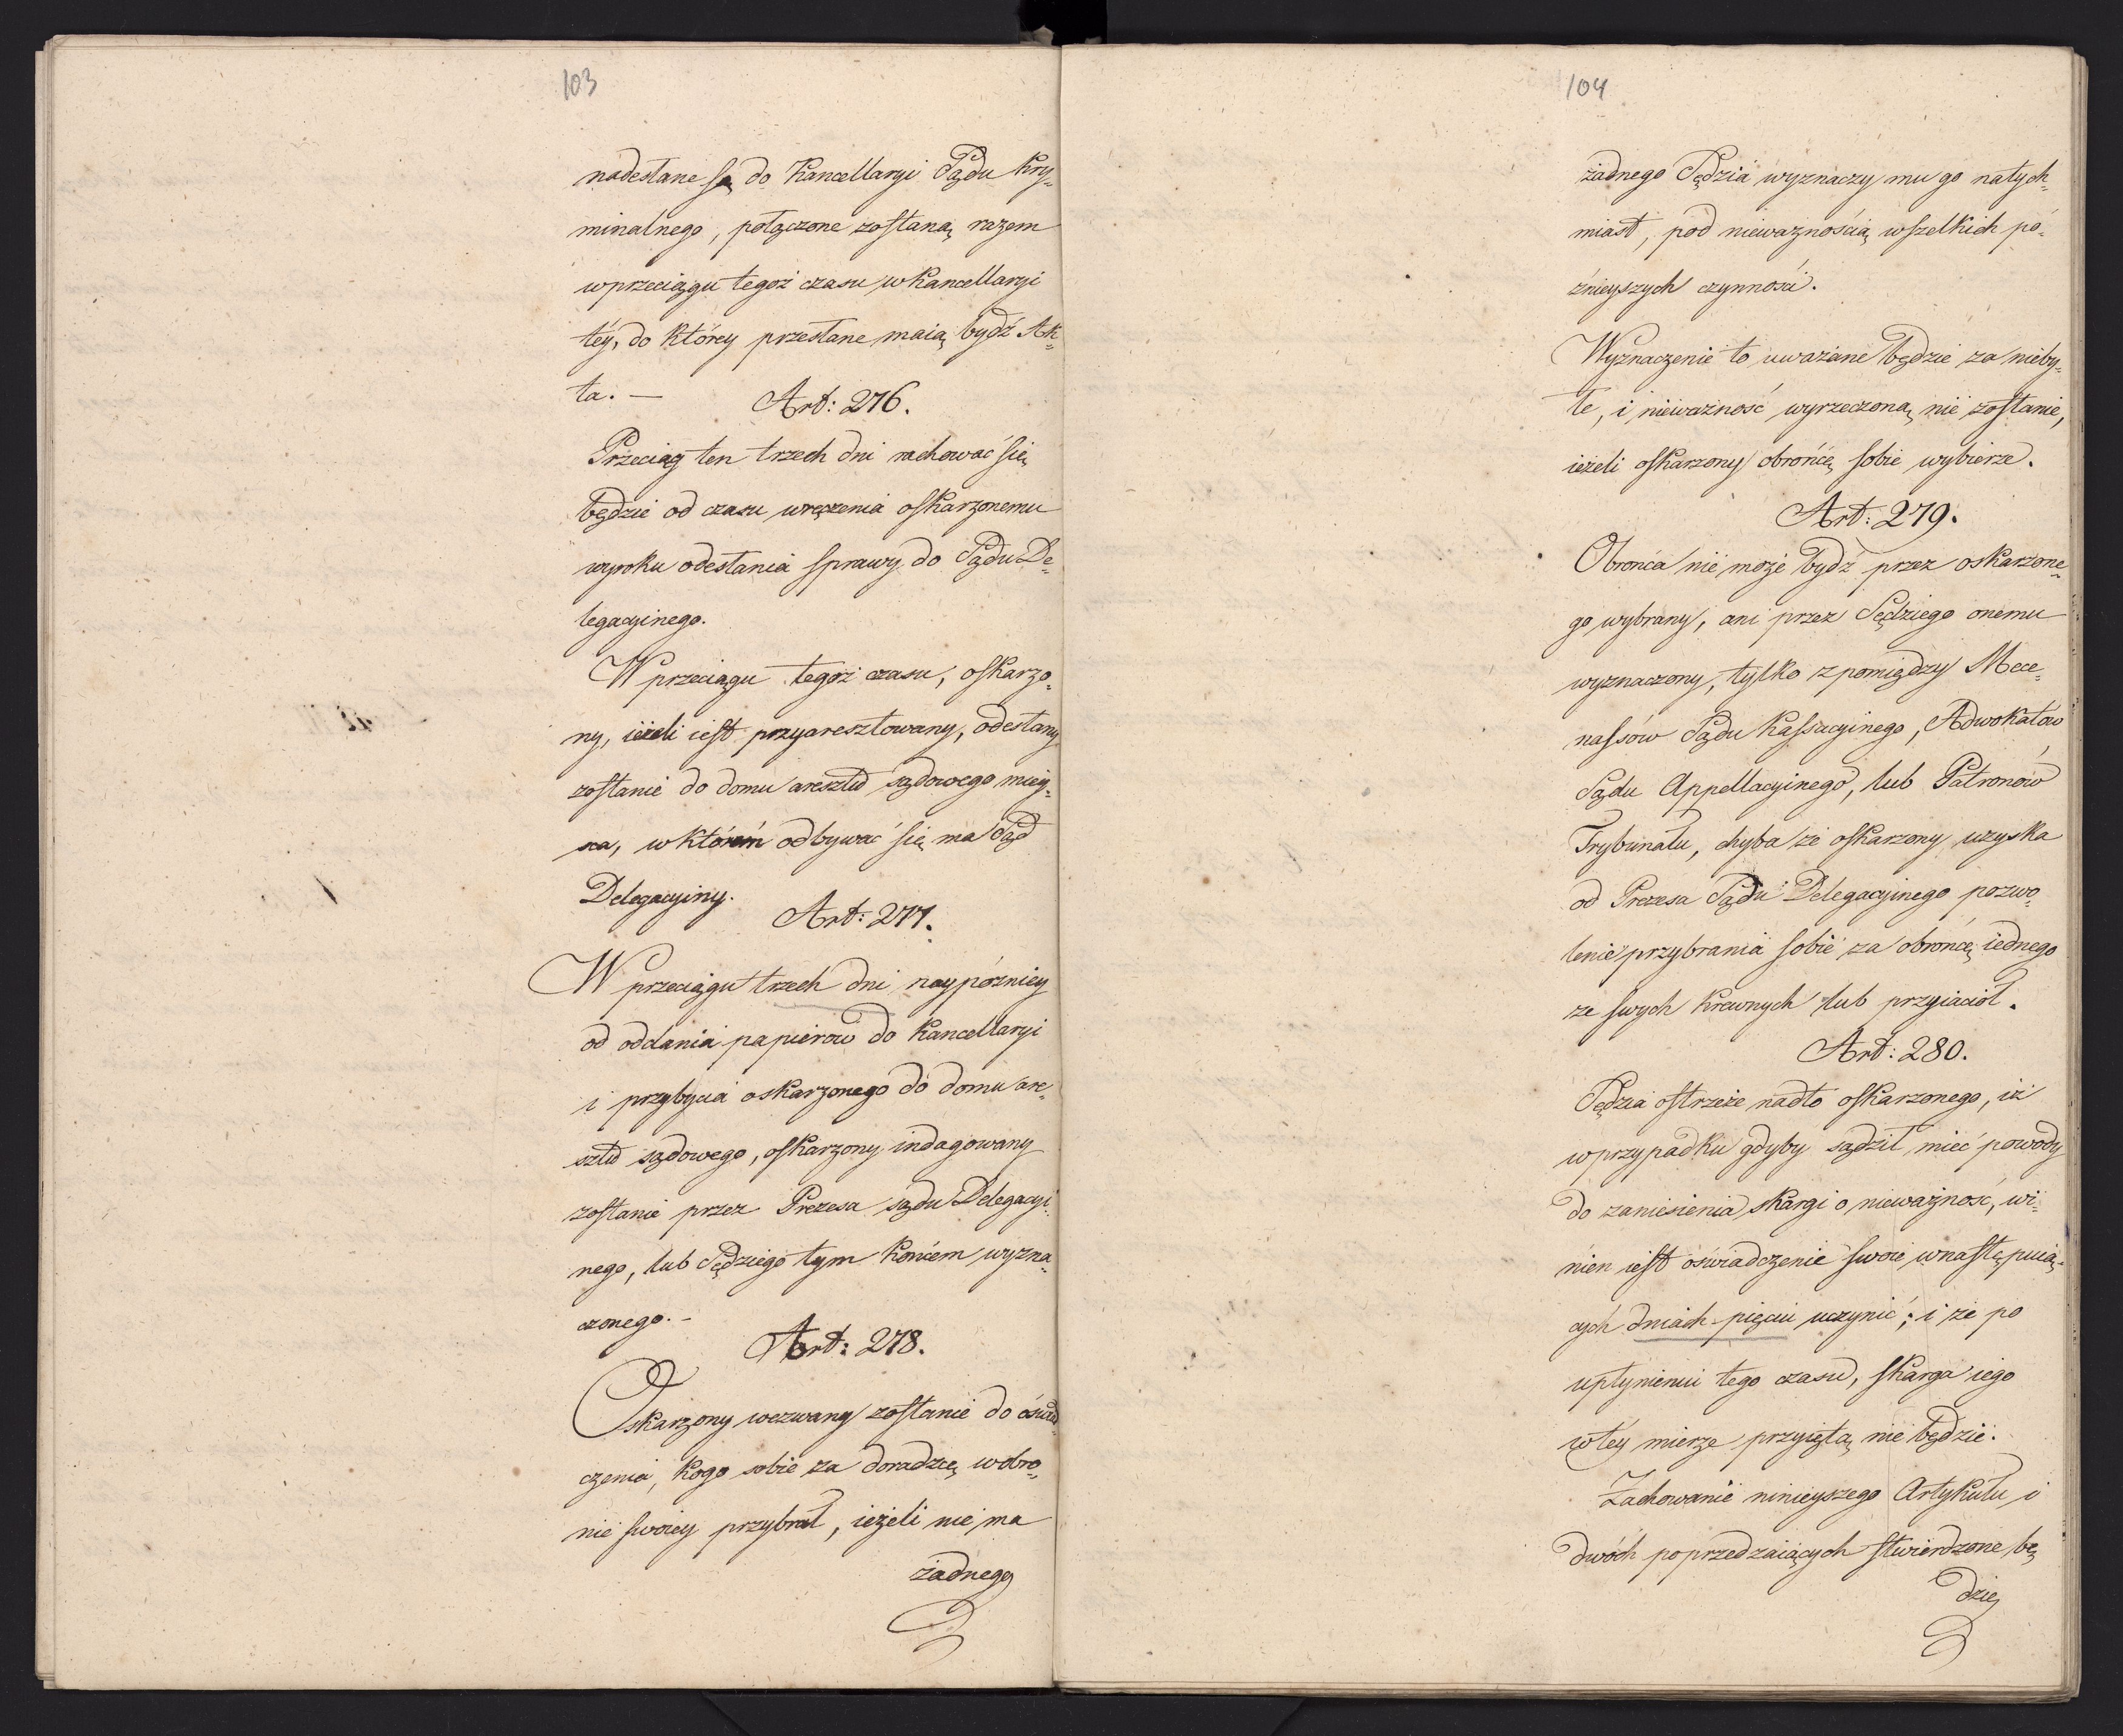 103
nadesłane są do Kancellaryi Sądu Kry-
minalnego, połączone zostaną razem
wprzeciągu tegoż czasu w Kancellaryi
téy, do którey przesłane maią bydź Ak-
ta. —
Art: 276.
Przeciąg ten trzech dni rachować się
będzie od czasu wręczenia oskarzonemu
wyroku odesłania sprawy do Sądu De-
legacyinego.
W przeciągu tegoż czasu, oskarzo-
ny, ieżeli iest przyaresztowany, odesłany
zostanie do domu aresztu sądowego miey-
sca, w którém odbywać się ma Sąd
Delegacyiny.
Art: 277.
W przeciągu trzech dni naypóźniey
od oddania papierów do Kancellaryi
i przybycia oskarzonego do domu are-
sztu sądowego, oskarzony indagowany
zostanie przez Prezesa sądu Delegacyi-
nego, lub Sędziego tym końcem wyzna-
czonego. -
Art: 278.
Oskarzony wezwany zostanie do óświad-
czenia, kogo sobie za doradzcę wobro-
nie swoiey przybrał, ieżeli nie ma
żadnego
104
żadnego Sędzia wyznaczy mu go natych-
miast, pod nieważnością wszelkich pó-
źnieyszych czynności.
Wyznaczenie to uważane będzie za nieby-
łe, i nieważność wyrzeczoną nie zostanie,
ieżeli oskarzony obrońcę sobie wybierze.
Art: 279.
Obrońca nie może bydź przez oskarzone-
go wybrany, ani przez Sędziego onemu
wyznaczony, tylko z pomiędzy Mece-
nassów Sądu Kassacyinego, Adwokatów
Sądu Appellacyinego, lub Patronów
Trybunału, chyba że oskarzony uzyska
od Prezesa Sądu Delegacyinego pozwo-
lenie przybrania sobie za obrońcę iednego
ze swych krewnych lub przyiaciół.
Art: 280.
Sędzia ostrzeże nadto oskarzonego, iż
wprzypadku gdyby sądził mieć powody
do zaniesienia skargi o nieważność, wi-
nien iest oświadczenie swoie wnastępuią-
cych dniach pięciu uczynić; i że po
upłynieniu tego czasu, skarga iego
w téy mierze przyiętą nie będzie.
Zachowanie ninieyszego Artykułu i
dwóch poprzedzaiących stwierdzone bę
dzie